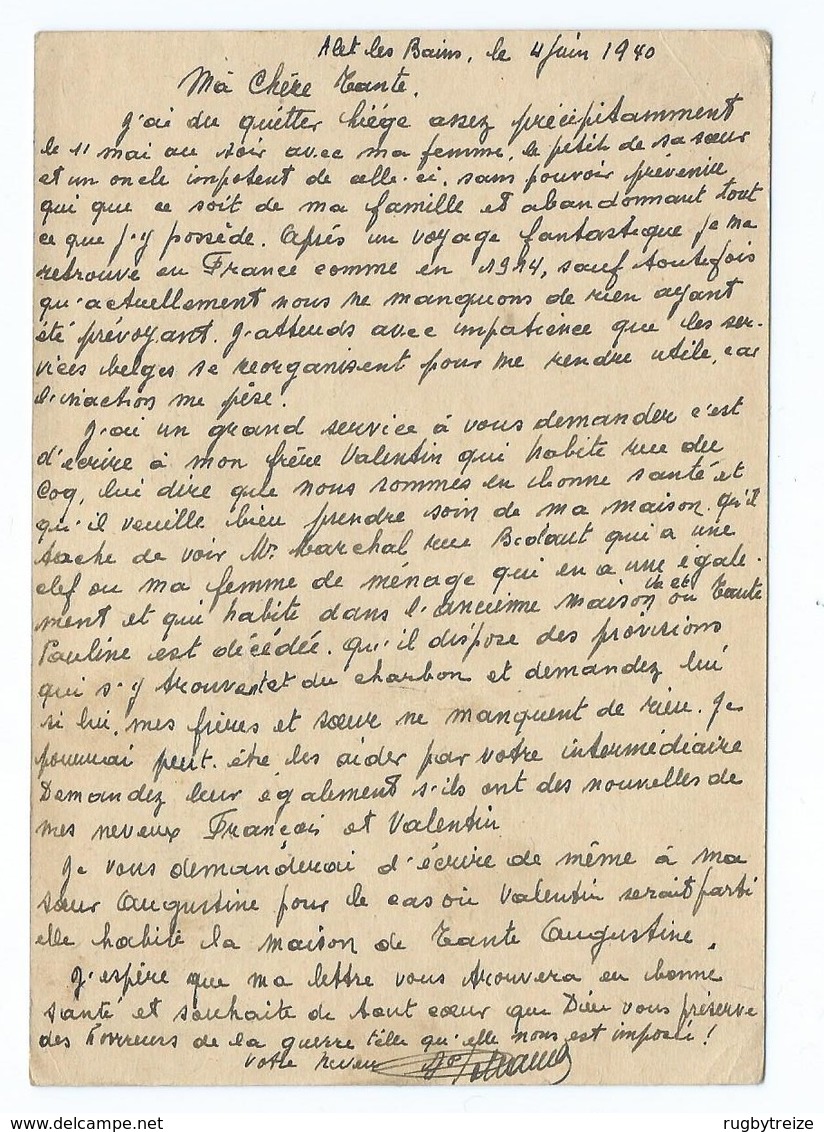 Alet les Bains, le 4 juin 1940
Ma Chère Tante.
J'ai du quitter Liége assez précipitamment
le 11 mai au soir avec ma femme, le petit de sa sœur
et un oncle impotent de celle-ci, sans pouvoir prévenir
qui que ce soit de ma famille et abandonnant tout
ce que j'y possède. Après un voyage fantastique je me
retrouve en France comme en 1914, sauf toutefois
qu'actuellement nous ne manquons de rien ayant
été prévoyant. J'attends avec impatience que les ser-
vices belges se reorganisent pour me rendre utile, car
l'inaction me pèse.
J'ai un grand service à vous demander c'est
d'écrire à mon frère Valentin qui habite rue du
Coq, lui dire que nous sommes en bonne santé et
qu'il veuille bien prendre soin de ma maison. qu'il
tache de voir Mr. Marchal rue Bedaut qui a une
clef ou ma femme de ménage qui en a une égale-
ment et qui habite dans l'ancienne maison où Tante
Pauline est décédée. Qu'il dispose des provisions
qui s'y trouvent et du charbon et demandez lui
si lui, mes frères et sœur ne manquent de rien. Je
pourrai peut-être les aider par votre intermédiaire
Demandez leur également s'ils ont des nouvelles de
mes neveux François et Valentin
Je vous demanderai d'écrire de même à ma
sœur Augustine pour le cas où Valentin serait parti
elle habite la maison de Tante Augustine.
J'espère que ma lettre vous trouvera en bonne
santé et souhaite de tout cœur que Dieu vous préserve
des horreurs de la guerre telle qu'elle nous est imposée!
Votre neveu
rugbytreize